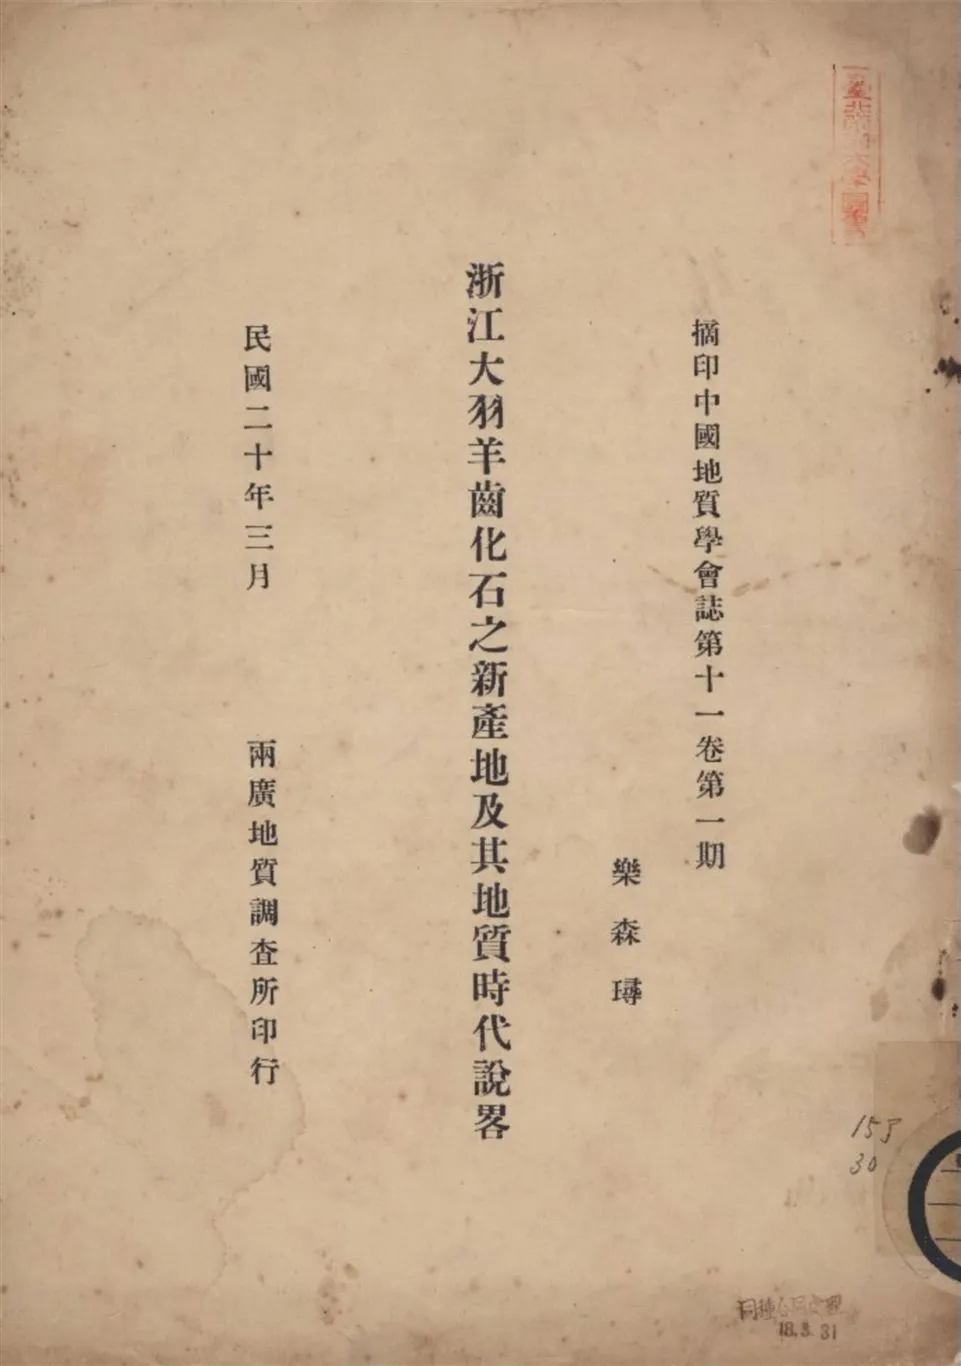 摘印中國地質學會誌第十一卷第一期
樂森璕
浙江大羽羊齒化石之新產地及其地質時代說畧
民國二十年三月
兩廣地質調查所印行
153
30
18.3.31